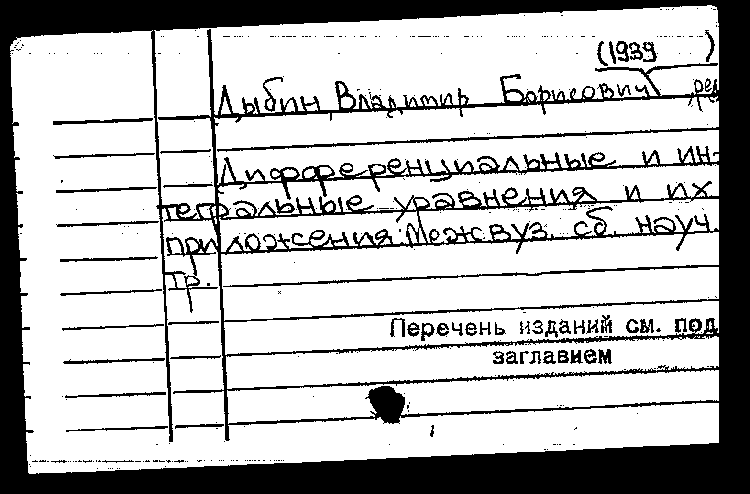 (1939 )
Дыбин, Владимир Борисович, ред
Дифференциальные и ин-
тегральные уравнения и их
приложения: Межвуз. сб. науч.
тр.
Перечень изданий см. под
заглавием